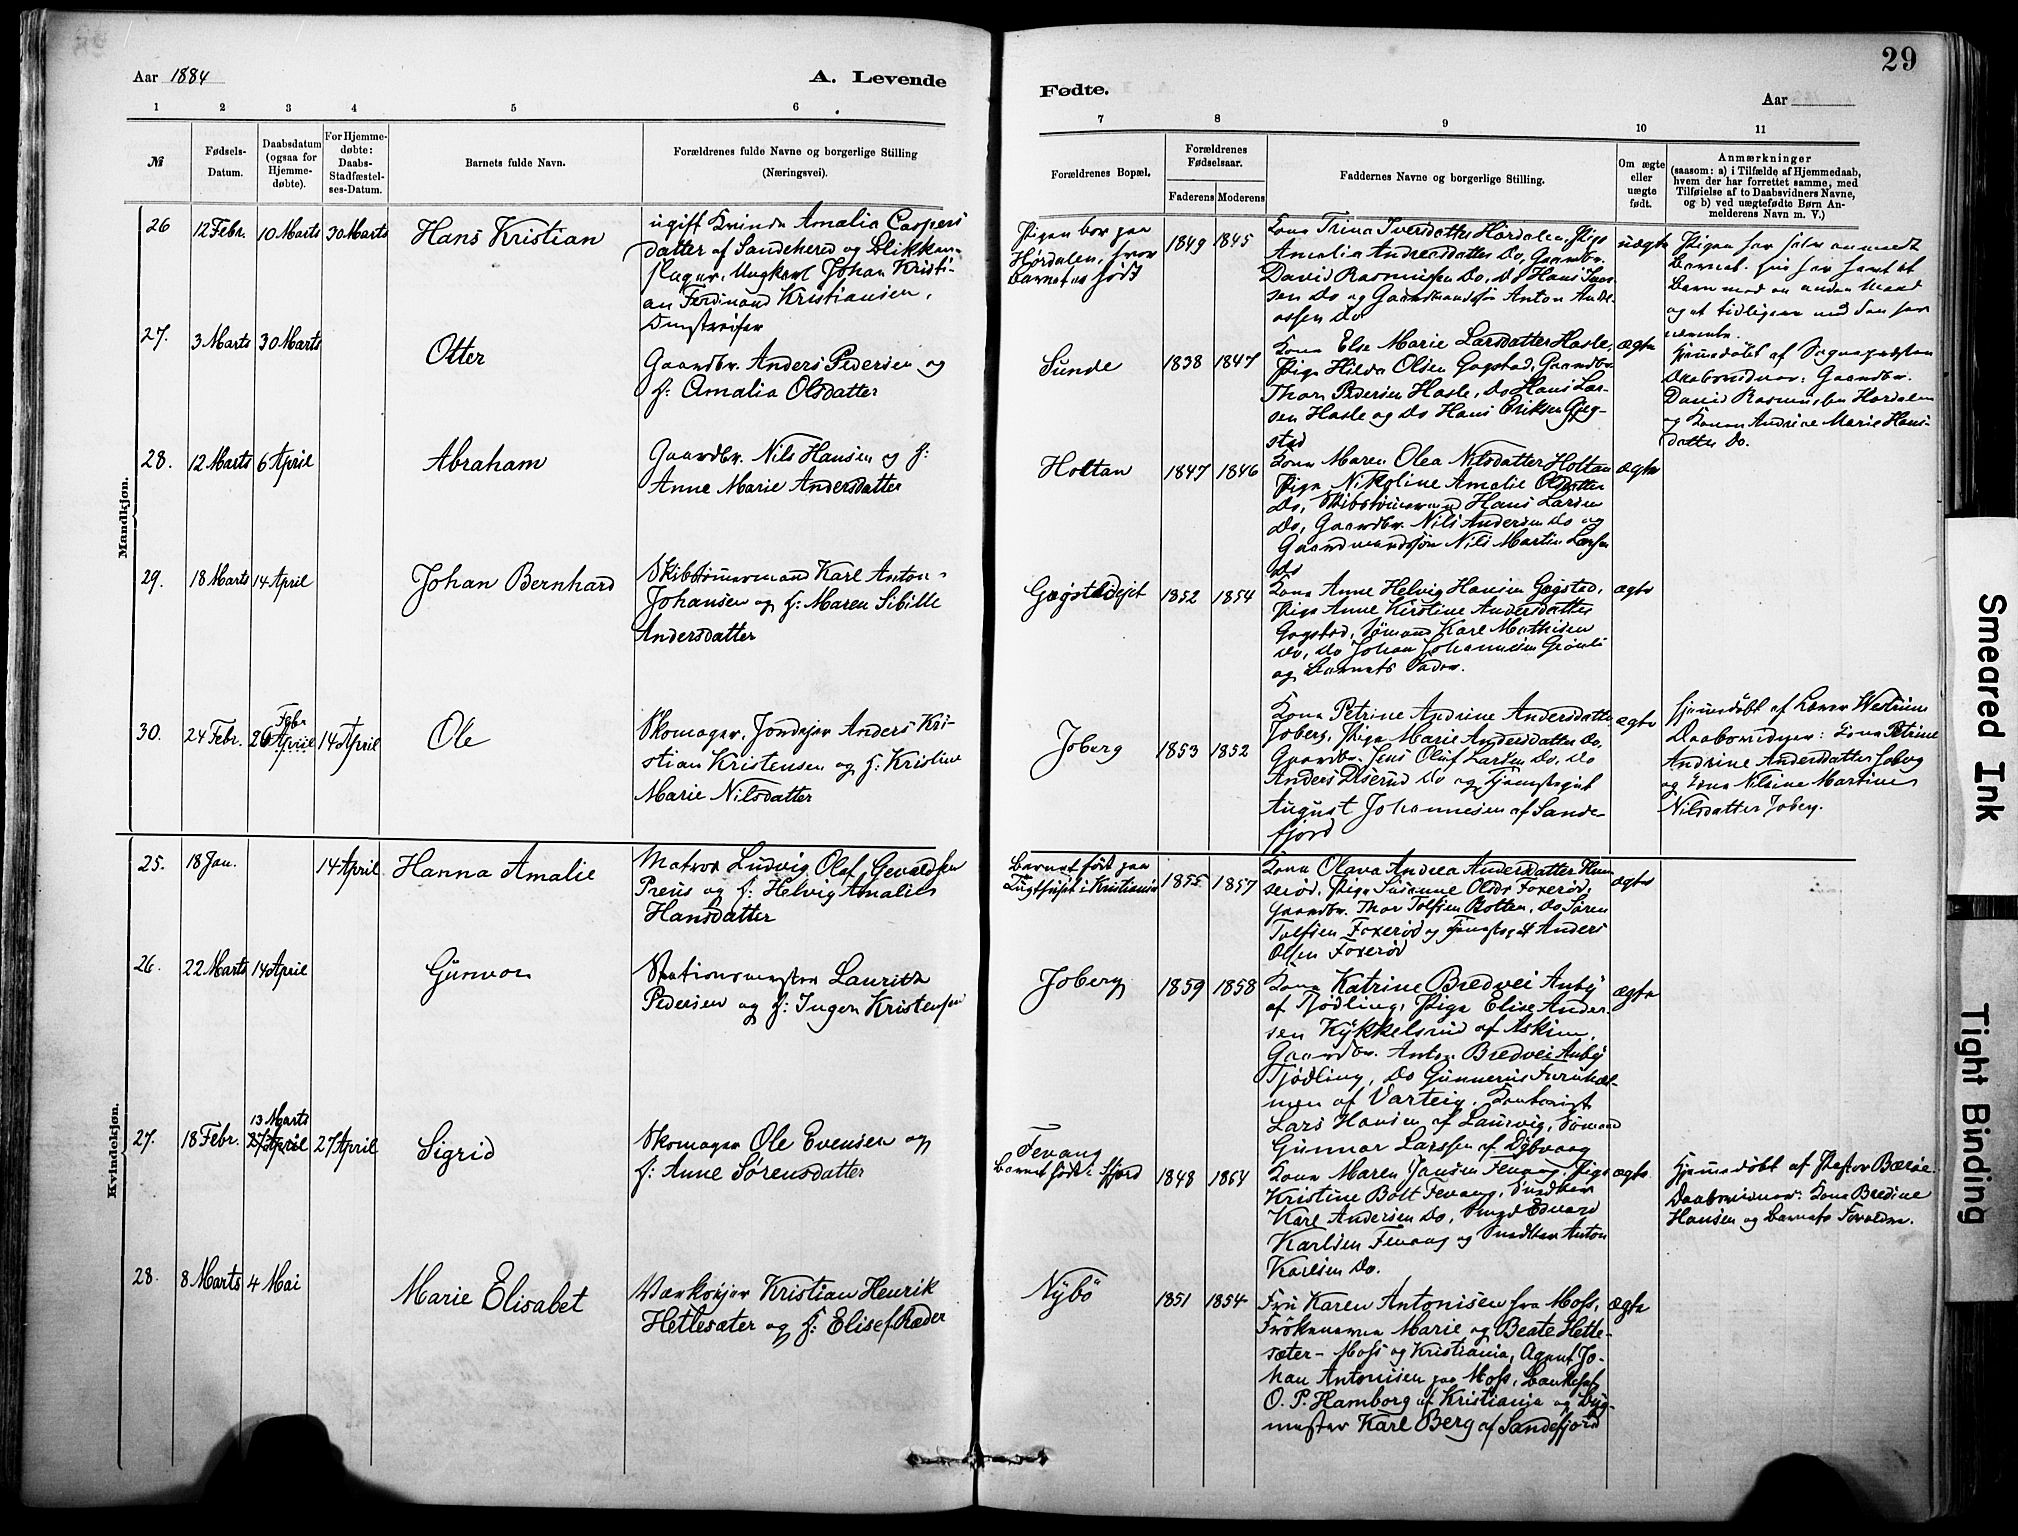 Aar 1884
A. Levende
1 2 3 4 5 6
№
Fødsels-
Datum.
Daabsdatum
(ogsaa for
Hjemme-
døbte).
For Hjemme-
døbte:
Daabs-
Stadfæstel-
ses-Datum.
Barnets fulde Navn.
Forældrenes fulde Navne og borgerlige Stilling
(Næringsvei).
Mandkjøn.
26 12 Febr. 10 Marts 30 Marts Hans Kristian
ugift Kvinde Amalia Caspers
datter af Sandeherred og Blikken-
slager, Ungkarl Johan Kristi-
an Ferdinand Kristiansen,
27. 3 Marts 30 Marts Otter
Gaardbr. Anders Pedersen og
H: Amalia Olsdatter
28. 12 Marts 6 April Abraham
Gaardbr. Nils Hansen og H:
Anne Marie Andersdatter
29. 18 Marts 14 April Johan Bernhard
Skibstømmermand Karl Anton
Johansen og H: Maren Sibille
Andersdatter
30. 24 Febr. 26 Febr April 14 April Ole
Skomager, Jordejer Anders Kri-
stian Kristensen og H: Kristine
Marie Nilsdatter
Kvindekjøn.
25. 18 Jan. 14 April Hanna Amalie
Matros Ludvig Olaf Gevaldsen
Preus og H: Helvig Amalie
Hansdatter
26. 22 Marts 14 April Gunvor
Stationsmester Lauritz
Pedersen og H: Inger Kristensen
27. 18 Febr. 13 Marts 27 April 27 April Sigrid
Skomager Ole Evensen og
H: Anne Sørensdatter
28. 8 Marts 4 Mai Marie Elisabet
Værksejer Kristian Henrik
Hetlesæter og H: Elise f. Ræder
29
Fødte.
Aar
7 8 9 10 11
Forældrenes Bopæl.
Forældrenes
Fødselsaar.
Faderens Moderens
Faddernes Navne og borgerlige Stilling.
Om ægte
eller
uægte
født.
Anmærkninger
(saasom: a) i Tilfælde af Hjemmedaab,
hvem der har forrettet samme, med
Tilføielse af to Daabsvidners Navne,
og b) ved uægtefødte Børn An-
melderens Navn m. V.)
Pigen bor paa
Hørdalen, hvor
Barnet er født
1849 1845
Kone Trina Iversdatter Hørdalen, Pige
Amalia Andreasdatter Do, Gaardbr.
David Rasmussen Do, Do Hans Iver-
sen Do og Gaardmandssøn Anton Andre-
assen Do
uægte
Pigen har selv anmeldt
Barnet. Hun har havt et
Barn med en anden Mand
og et tidligere med den her
nævnte.
Sunde 1838 1847
Kone Else Marie Larsdatter Hasle,
Pige Hilda Olsen Gogstad, Gaardbr.
Thor Pedersen Hasle, Do Hans Lar-
sen Hasle og Do Hans Eriksen Gog-
stad
ægte
Hjemmedøbt af Sognepresten
Daabsvidner: Gaardbr.
David Rasmussen Hørdalen
og Konen Andrine Marie Hans-
datter Do.
Holtan 1847 1846
Kone Maren Olea Nilsdatter Holtan
Pige Nikoline Amalie Olsdatter
Do, Skibstømmermand Hans Larsen
Do, Gaardbr. Nils Andersen Do og
Gaardmandssøn Nils Martin Larsen
Do
ægte
Gogstadejet 1852 1854
Kone Anne Helvig Hansen Gogstad,
Pige Anne Kirstine Andersdatter
Gogstad, Sømand Karl Mathisen
Do, Do Johan Johannesen Grønli
og Barnets Fader.
ægte
Joberg 1853 1852
Kone Petrine Andrine Andersdatter
Joberg, Pige Marie Andersdatter Do,
Gaardbr. Jens Oluf Larsen Do, Do
Anders Do og Tjenestegut
August Johannesen af Sande-
fjord
ægte
Hjemmedøbt af Lærer Westrum
Daabsvidner: Kone Petrine
Andrine Andersdatter Joberg
og Kone Nilsine Martine
Nilsdatter Joberg.
Barnet født paa
Tugthuset i Kristiania
1855 1857
Kone Olava Andrea Andersdatter
Pige Susanne Olsdr Foxerød,
Gaardbr. Thor Tolfsen Botten, Do Søren
Tolfsen Foxerød og Tjenestegut Anders
Olsen Foxerød
ægte
Joberg 1859 1858
Kone Katrine Bredvei Auby
af Tjødling, Pige Elise Ander-
sen Kykkelsrud af Askim,
Gaardbr. Anton Bredvei Auby
Tjødling, Do Gunnerus Furuhol-
men af Varteig, Kontorist
Lars Hansen af Laurvig, Sømand
Gunnar Larssen af Dybvaag
ægte
Fevang
Barnet født i Sfjord
1848 1864
Kone Maren Jansen Fevang, Pige
Kristine Bolt Fevang, Snedker
Karl Andersen Do, Smed Edvard
Karlsen Fevang og Snedker Anton
Karlsen Do.
ægte
Hjemmedøbt af Pastor Bærøe.
Daabsvidner: Kone Bredine
Hansen og Barnets Forældre.
Nybö 1851 1854
Fru Karen Antonisen fra Moss,
Frøknerne Marie og Beate Hetle-
sæter – Moss og Kristiania, Agent Jo-
han Antonisen paa Moss,
O. P. Hamborg af Kristiania og Byg-
mester Karl Berg af Sandefjord
ægte
Smeared Ink
Tight Binding